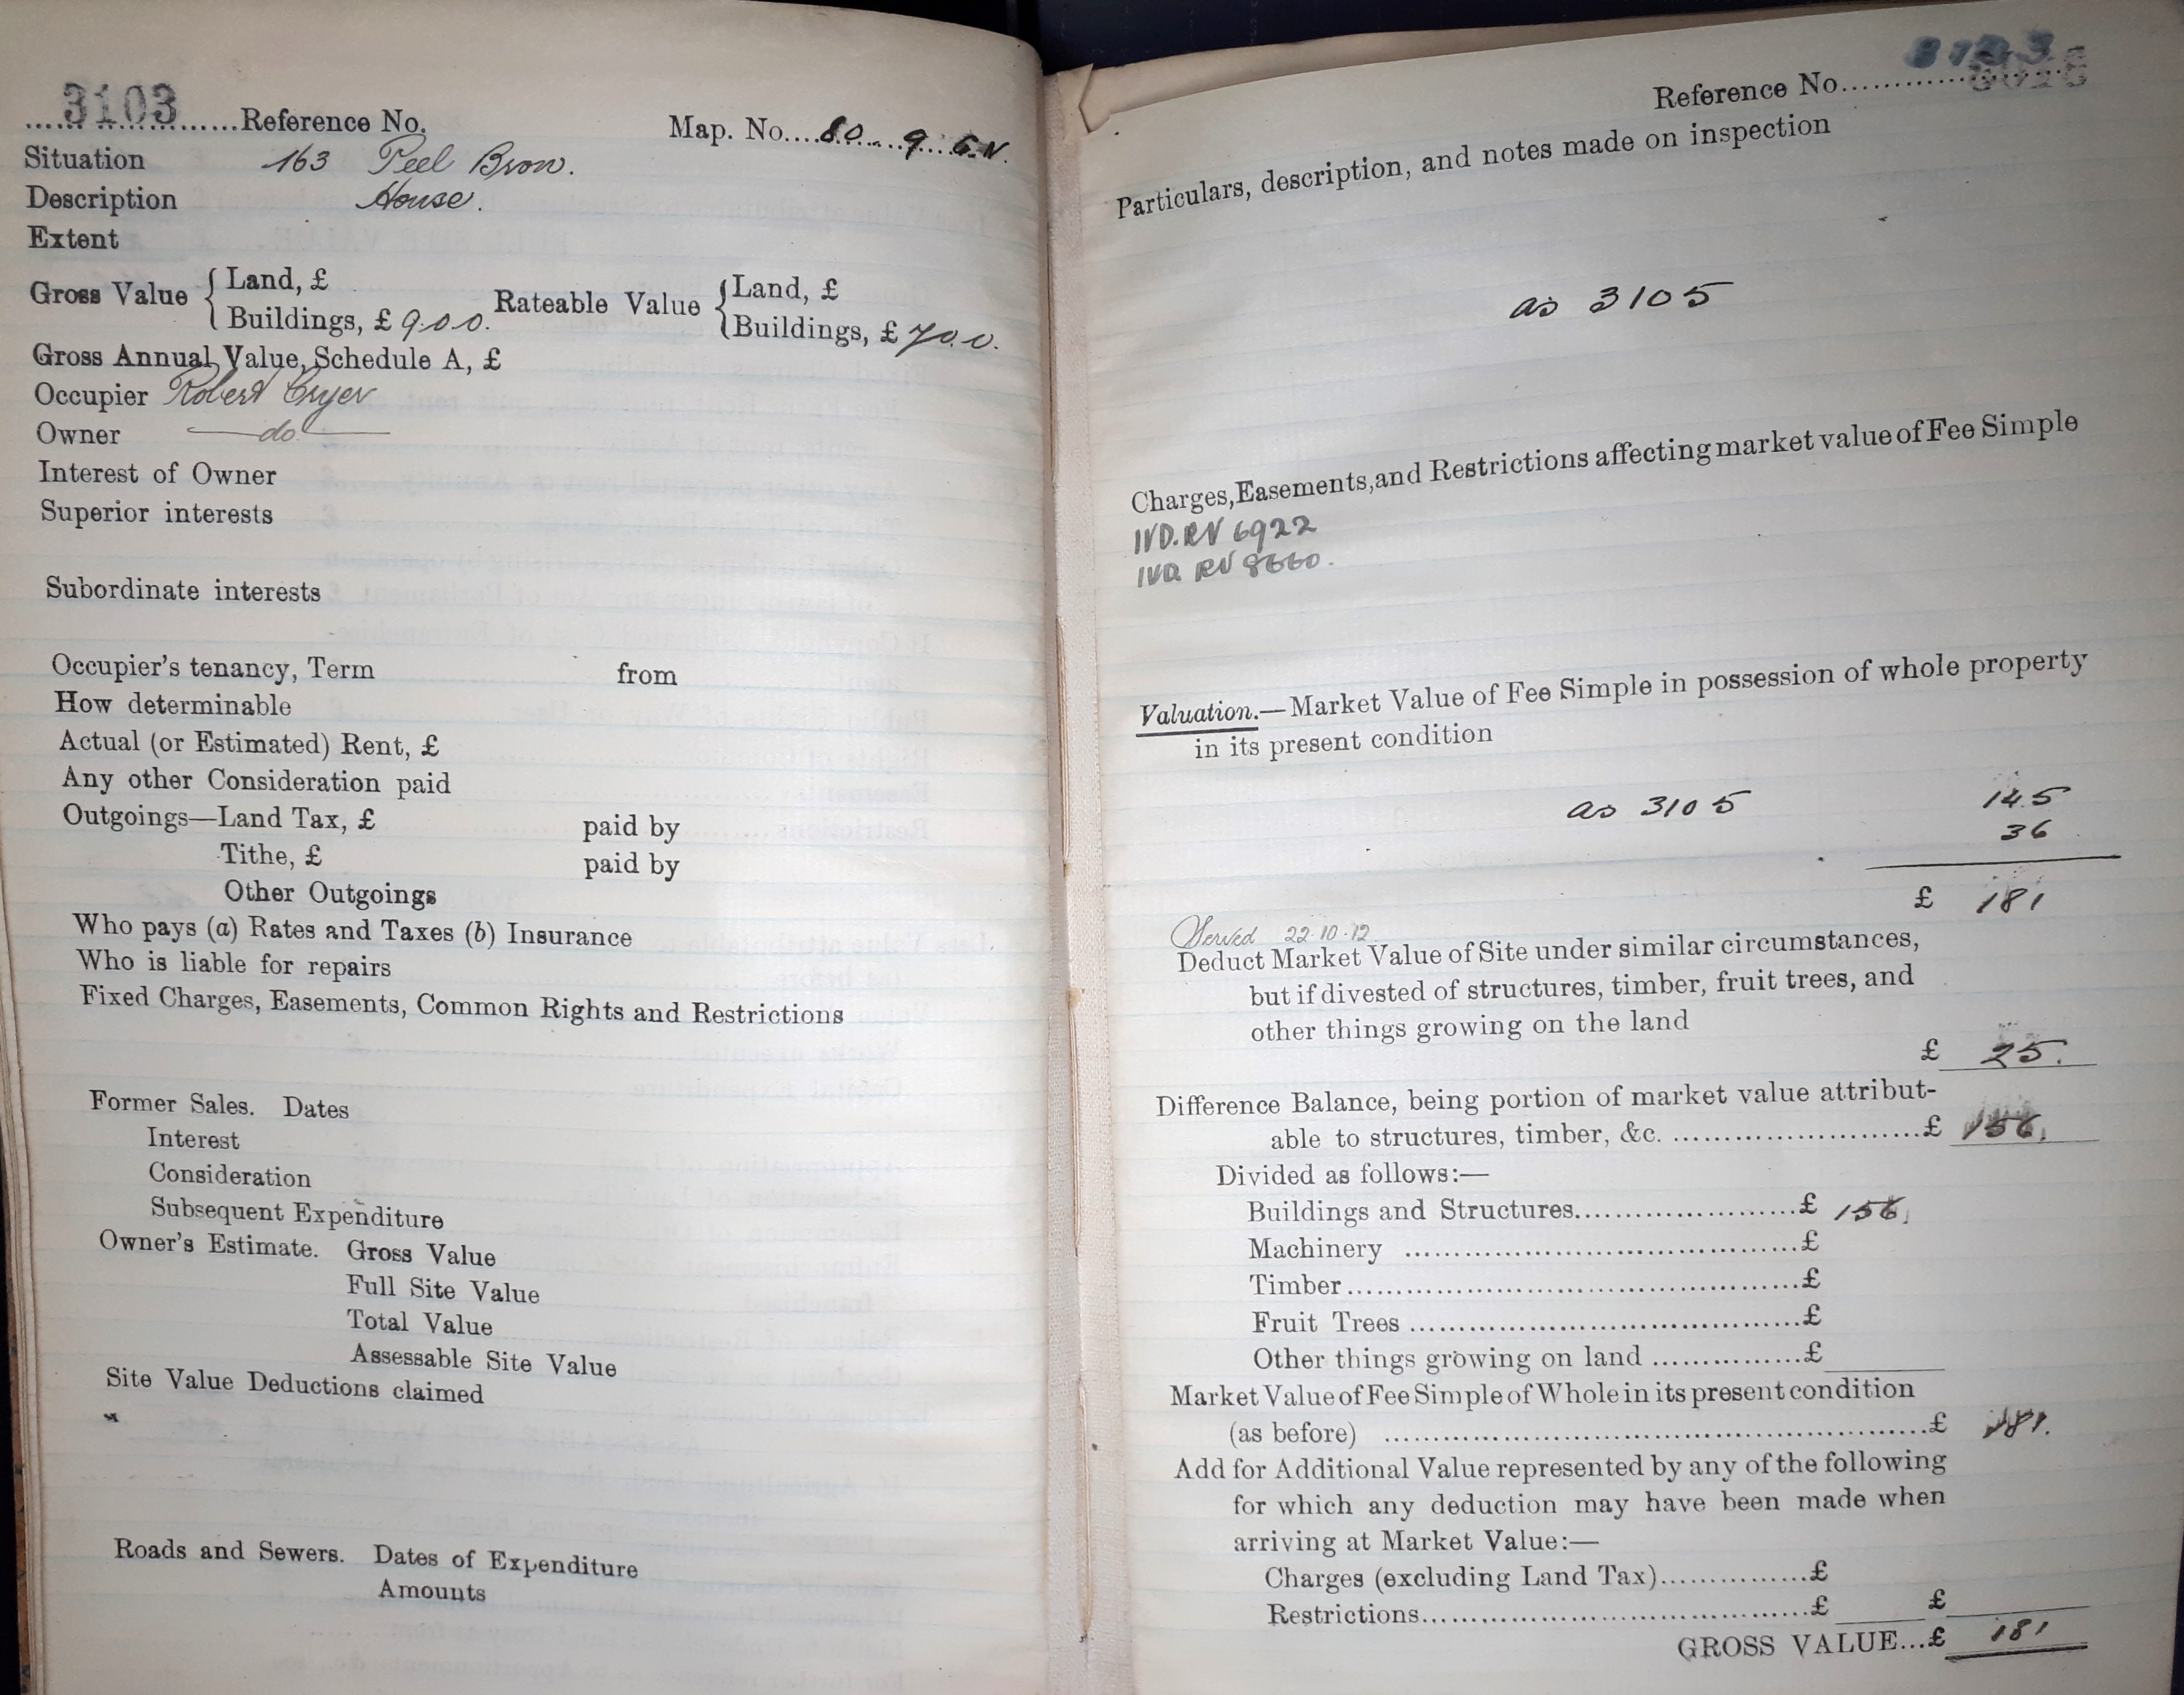 3103 Reference No. Map. No. 80. 9 G.N.
Situation 163 Peel Brow.
Description House.
Extent
Gross Value { Land, £
Buildings, £ 9.0.0. Rateable Value { Land, £
Buildings, £ 7.0.0.
Gross Annual Value, Schedule A, £
Occupier Robert Cryer
Owner do
Interest of Owner
Superior interests
Subordinate interests
Occupier's tenancy, Term from
How determinable
Actual (or Estimated) Rent, £
Any other Consideration paid
Outgoings—Land Tax, £ paid by
Tithe, £ paid by
Other Outgoings
Who pays (a) Rates and Taxes (b) Insurance
Who is liable for repairs
Fixed Charges, Easements, Common Rights and Restrictions
Former Sales. Dates
Interest
Consideration
Subsequent Expenditure
Owner's Estimate. Gross Value
Full Site Value
Total Value
Assessable Site Value
Site Value Deductions claimed
Roads and Sewers. Dates of Expenditure
Amounts
Reference No.
Particulars, description, and notes made on inspection
as 3105
Charges, Easements, and Restrictions affecting market value of Fee Simple
IVD. RV 6922
IVD. RV 8660.
Valuation.—Market Value of Fee Simple in possession of whole property
in its present condition
as 3105 145
36
£ 181
Served 22.10.12
Deduct Market Value of Site under similar circumstances,
but if divested of structures, timber, fruit trees, and
other things growing on the land
£ 25.
Difference Balance, being portion of market value attribut-
able to structures, timber, &c. £ 156.
Divided as follows:—
Buildings and Structures £ 156.
Machinery £
Timber £
Fruit Trees £
Other things growing on land £
Market Value of Fee Simple of Whole in its present condition
(as before) £ 181.
Add for Additional Value represented by any of the following
for which any deduction may have been made when
arriving at Market Value:—
Charges (excluding Land Tax) £
Restrictions £ £
GROSS VALUE... £ 181